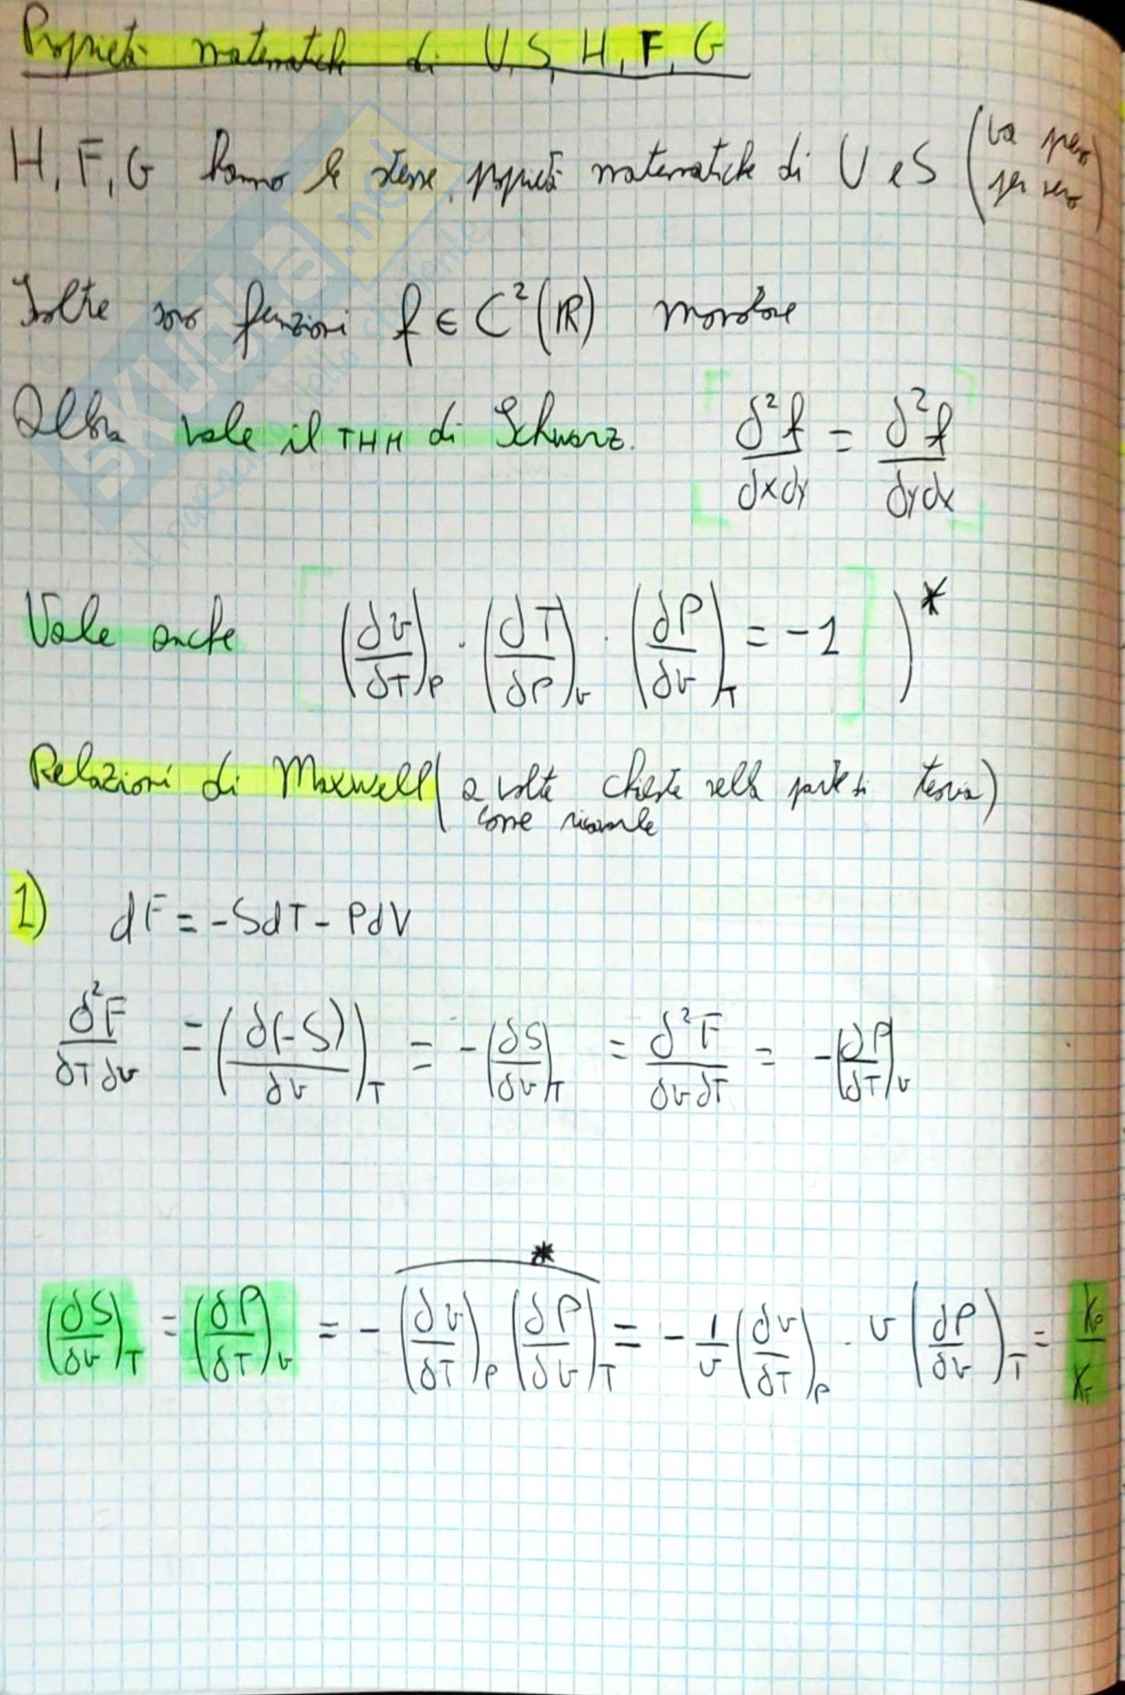 Proprietà matematiche di U, S, H, F, G
H, F, G hanno le stesse proprietà matematiche di U e S (
Inoltre sono funzioni f ∈ C²(ℝ) monotone
Allora vale il THM di Schwarz. [∂²f/∂x∂y = ∂²f/∂y∂x]
Vale anche [(∂v/∂T)_P · (∂T/∂P)_v · (∂P/∂v)_T = -1] )*
Relazioni di Maxwell (a volte chieste nella parte di teoria)
come ricavarle
1) dF = -SdT - PdV
∂²F/∂T∂v = (∂(-S)/∂v)_T = -(∂S/∂v)_T = ∂²F/∂v∂T = -(∂P/∂T)_v
*
(∂S/∂v)_T = (∂P/∂T)_v = -(∂v/∂T)_P (∂P/∂v)_T = -1/v (∂v/∂T)_P · v (∂P/∂v)_T = K_P/K_T
SKUOLA.net